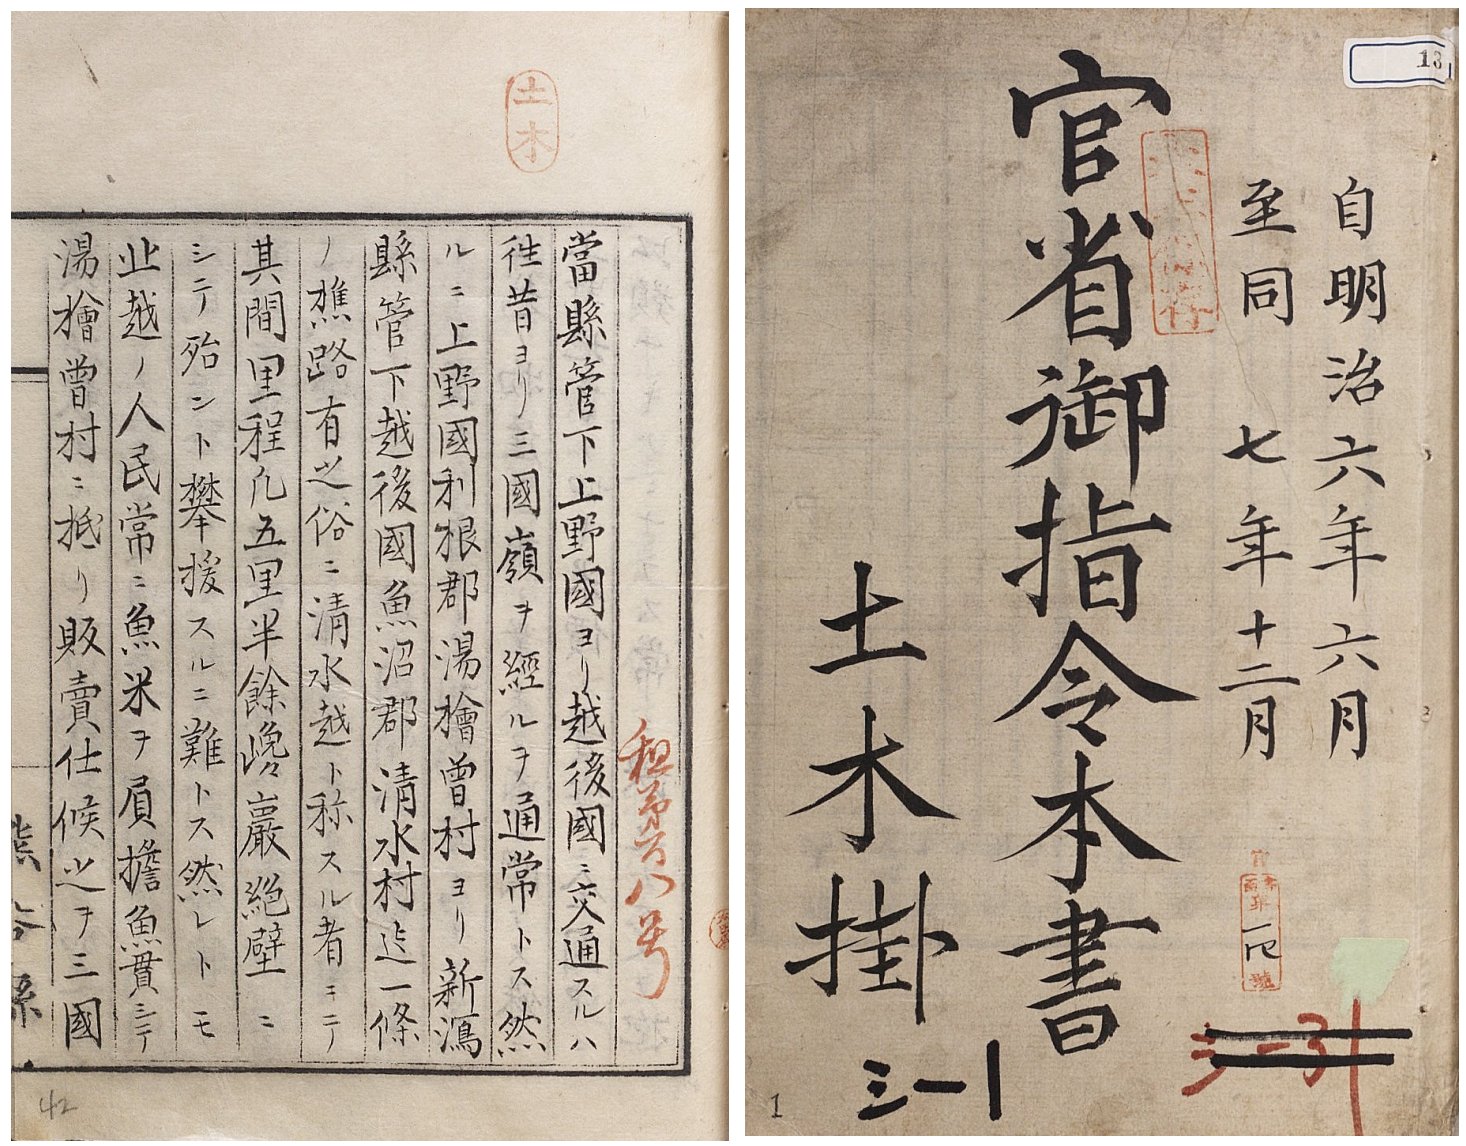 自明治六年六月
至同七年十二月
官省御指令本書
土木掛
三一1
1
13
土木
租第百八号
當縣管下上野國ヨリ越後國ニ交通スルハ
徃昔ヨリ三國嶺ヲ經ルヲ通常トス然
ルニ上野國利根郡湯檜曽村ヨリ新潟
縣管下越後國魚沼郡清水村迠一條
ノ樵路有之俗ニ清水越ト称スル者ニテ
其間里程凢五里半餘巉巖絶壁ニ
シテ殆ント攀援スルニ難トス然レトモ
止越ノ人民常ニ魚米ヲ肩擔魚貫シテ
湯檜曽村ニ抵リ販賣仕候之ヲ三國
熊谷縣
42